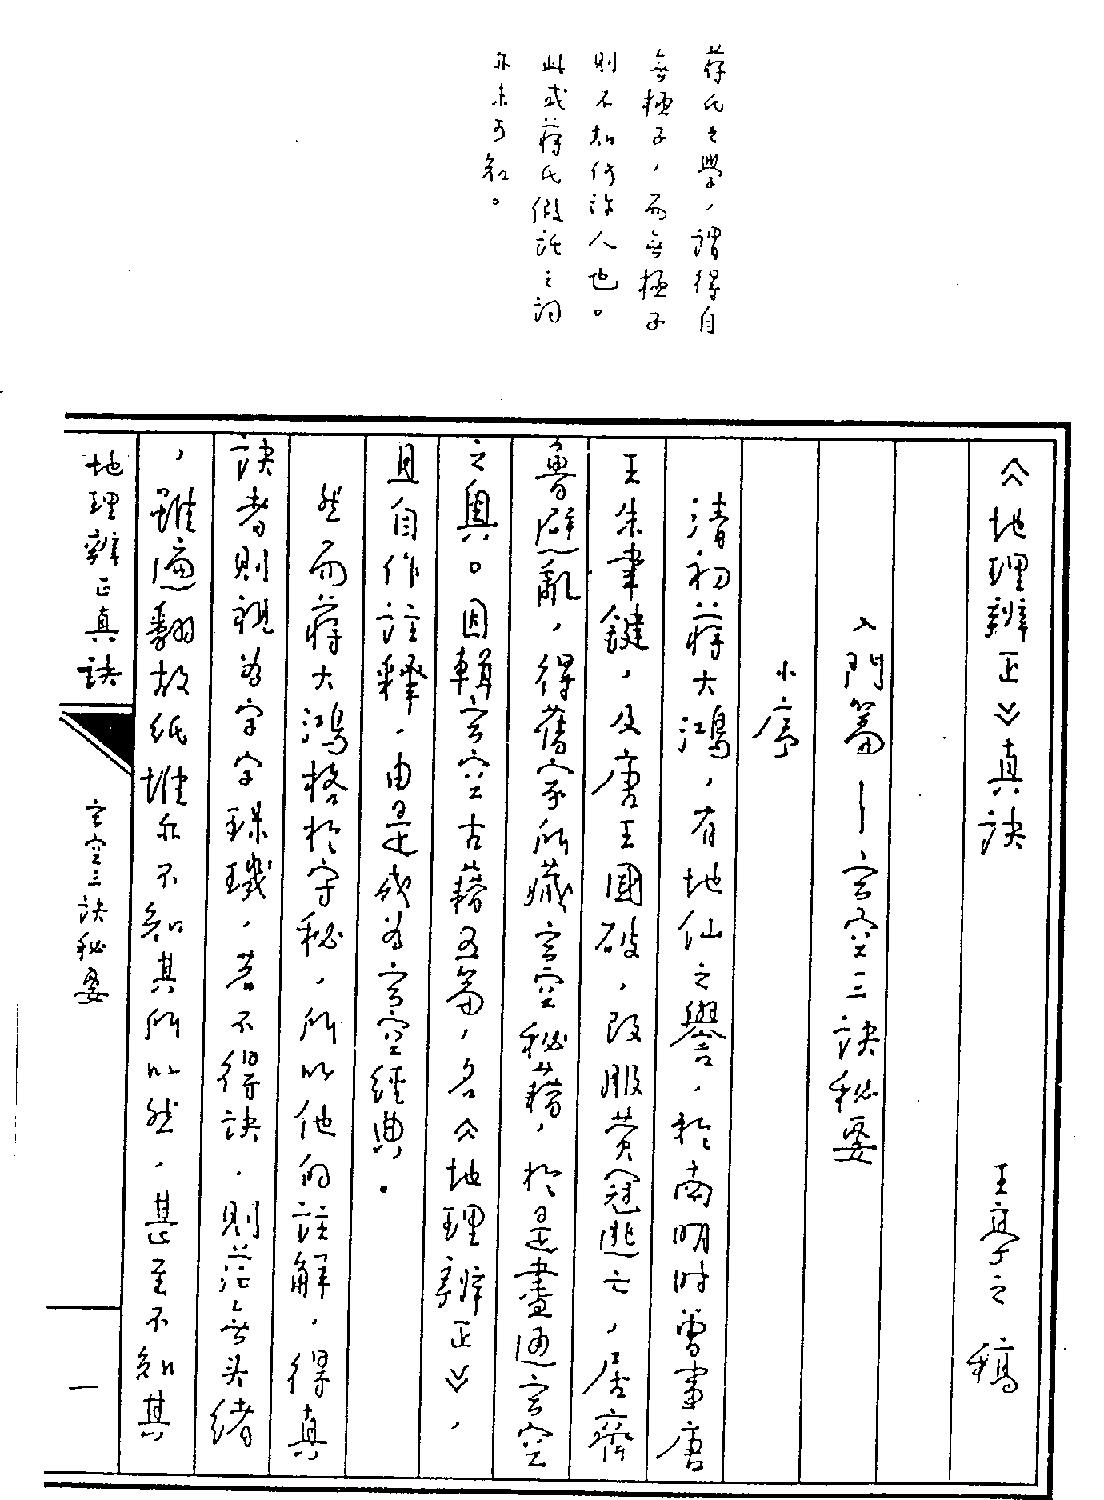 蔣氏之學，謂得自
無極子，而無極子
則不知何許人也。
此或蔣氏假託之詞
亦未可知。
《地理辨正》真訣
王亭之 稿
入門篇—玄空三訣秘要
小序
清初蔣大鴻，有地仙之譽，於南明時曾事唐
王朱聿鍵，及唐王國破，改服黃冠逃亡，居齊
魯避亂，得舊家所藏玄空秘藉，於是盡通玄空
之奧。因輯玄空古藉五篇，名《地理辨正》，
且自作註釋，由是成為玄空經典。
然而蔣大鴻格於守秘，所以他的註解，得真
訣者則視為字字珠璣，若不得訣，則茫無頭緒
，雖遍翻故紙堆亦不知其所以然，甚至不知其
地理辨正真訣
玄空三訣秘要
一